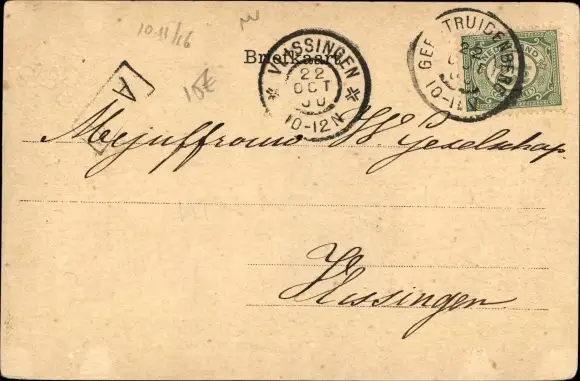 10.11/26
Briefkaart
VLISSINGEN
22
OCT
00
10-12N
GEERTRUIDENBERG
22
10-12N
A
10€
Mejuffrouw W. Gezelschap.
Vlissingen